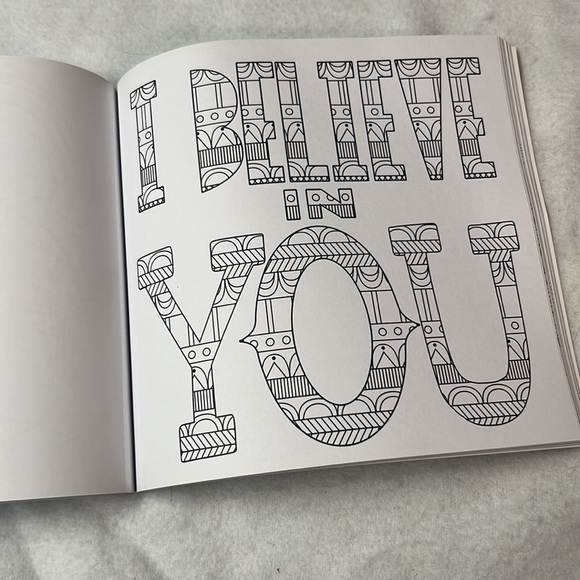 I BELIEVE
IN
YOU